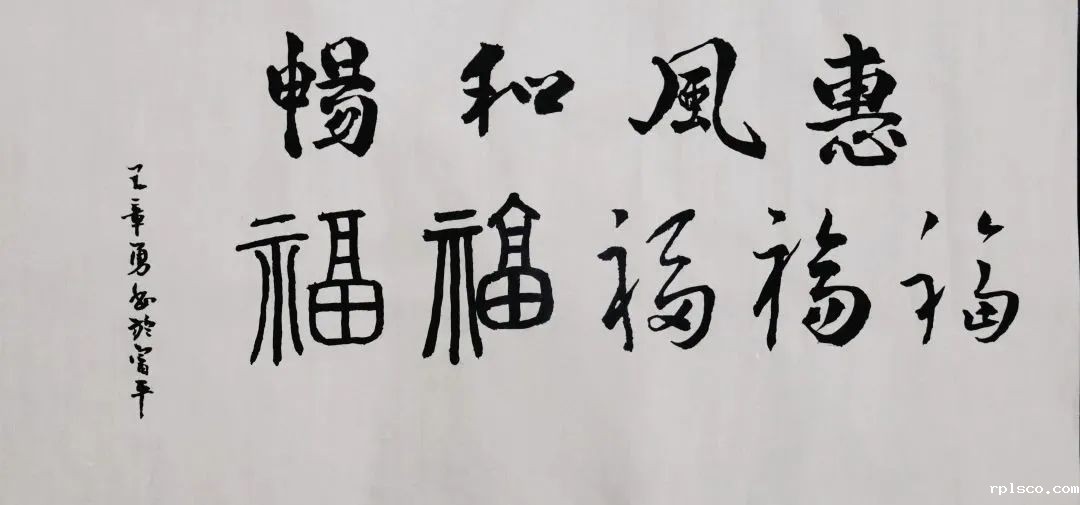 惠風和暢
福福福福福
王章勇書於富平
rplsco.com